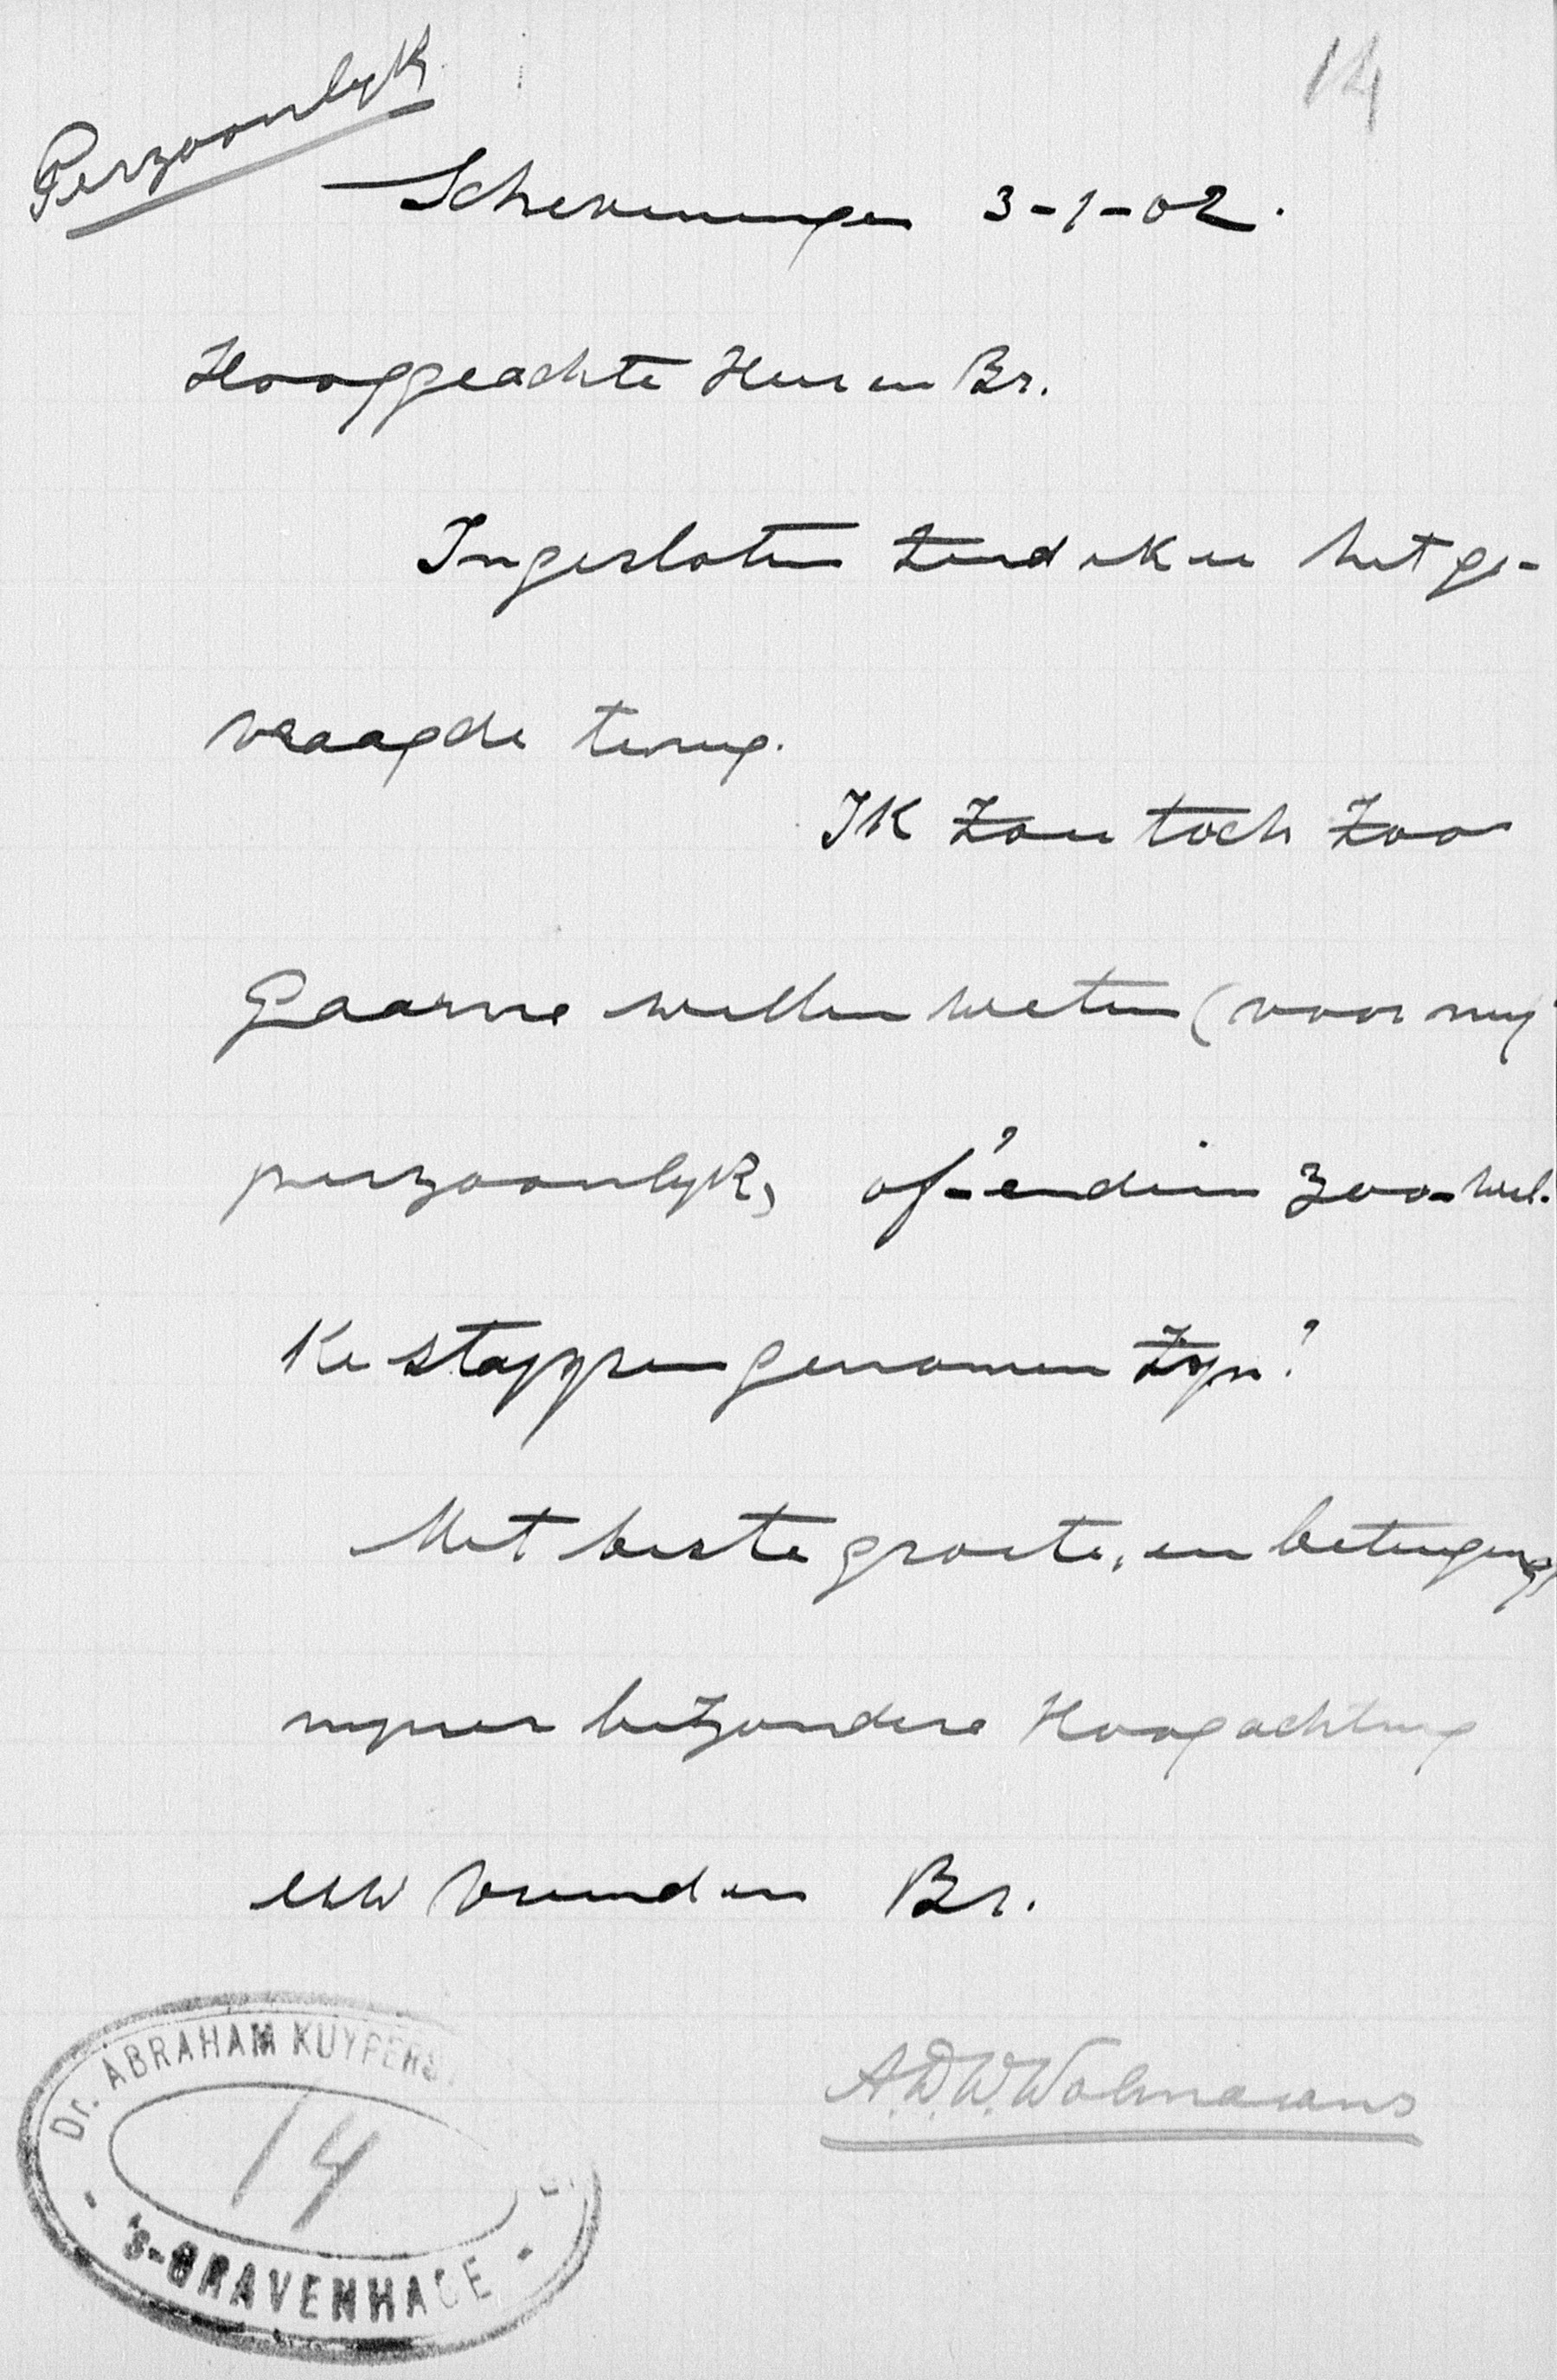 Perzoonlyk
14
Scheveningen 3-1-02.
Hooggeachte Heer en Br.
Ingesloten zend ik u het ge-
vraagde terug.
Ik zou toch zoo
Gaarne willen weten (voor my
perzoonlyk, of- endien zoo- wel-
ke stappen genomen zyn?
Met beste groete, en betuiging
myner bitzondere Hoogachting
Uw vriend en Br.
A.D.W. Wolmarans
Dr. ABRAHAM KUYPERS
14
'S-GRAVENHAGE